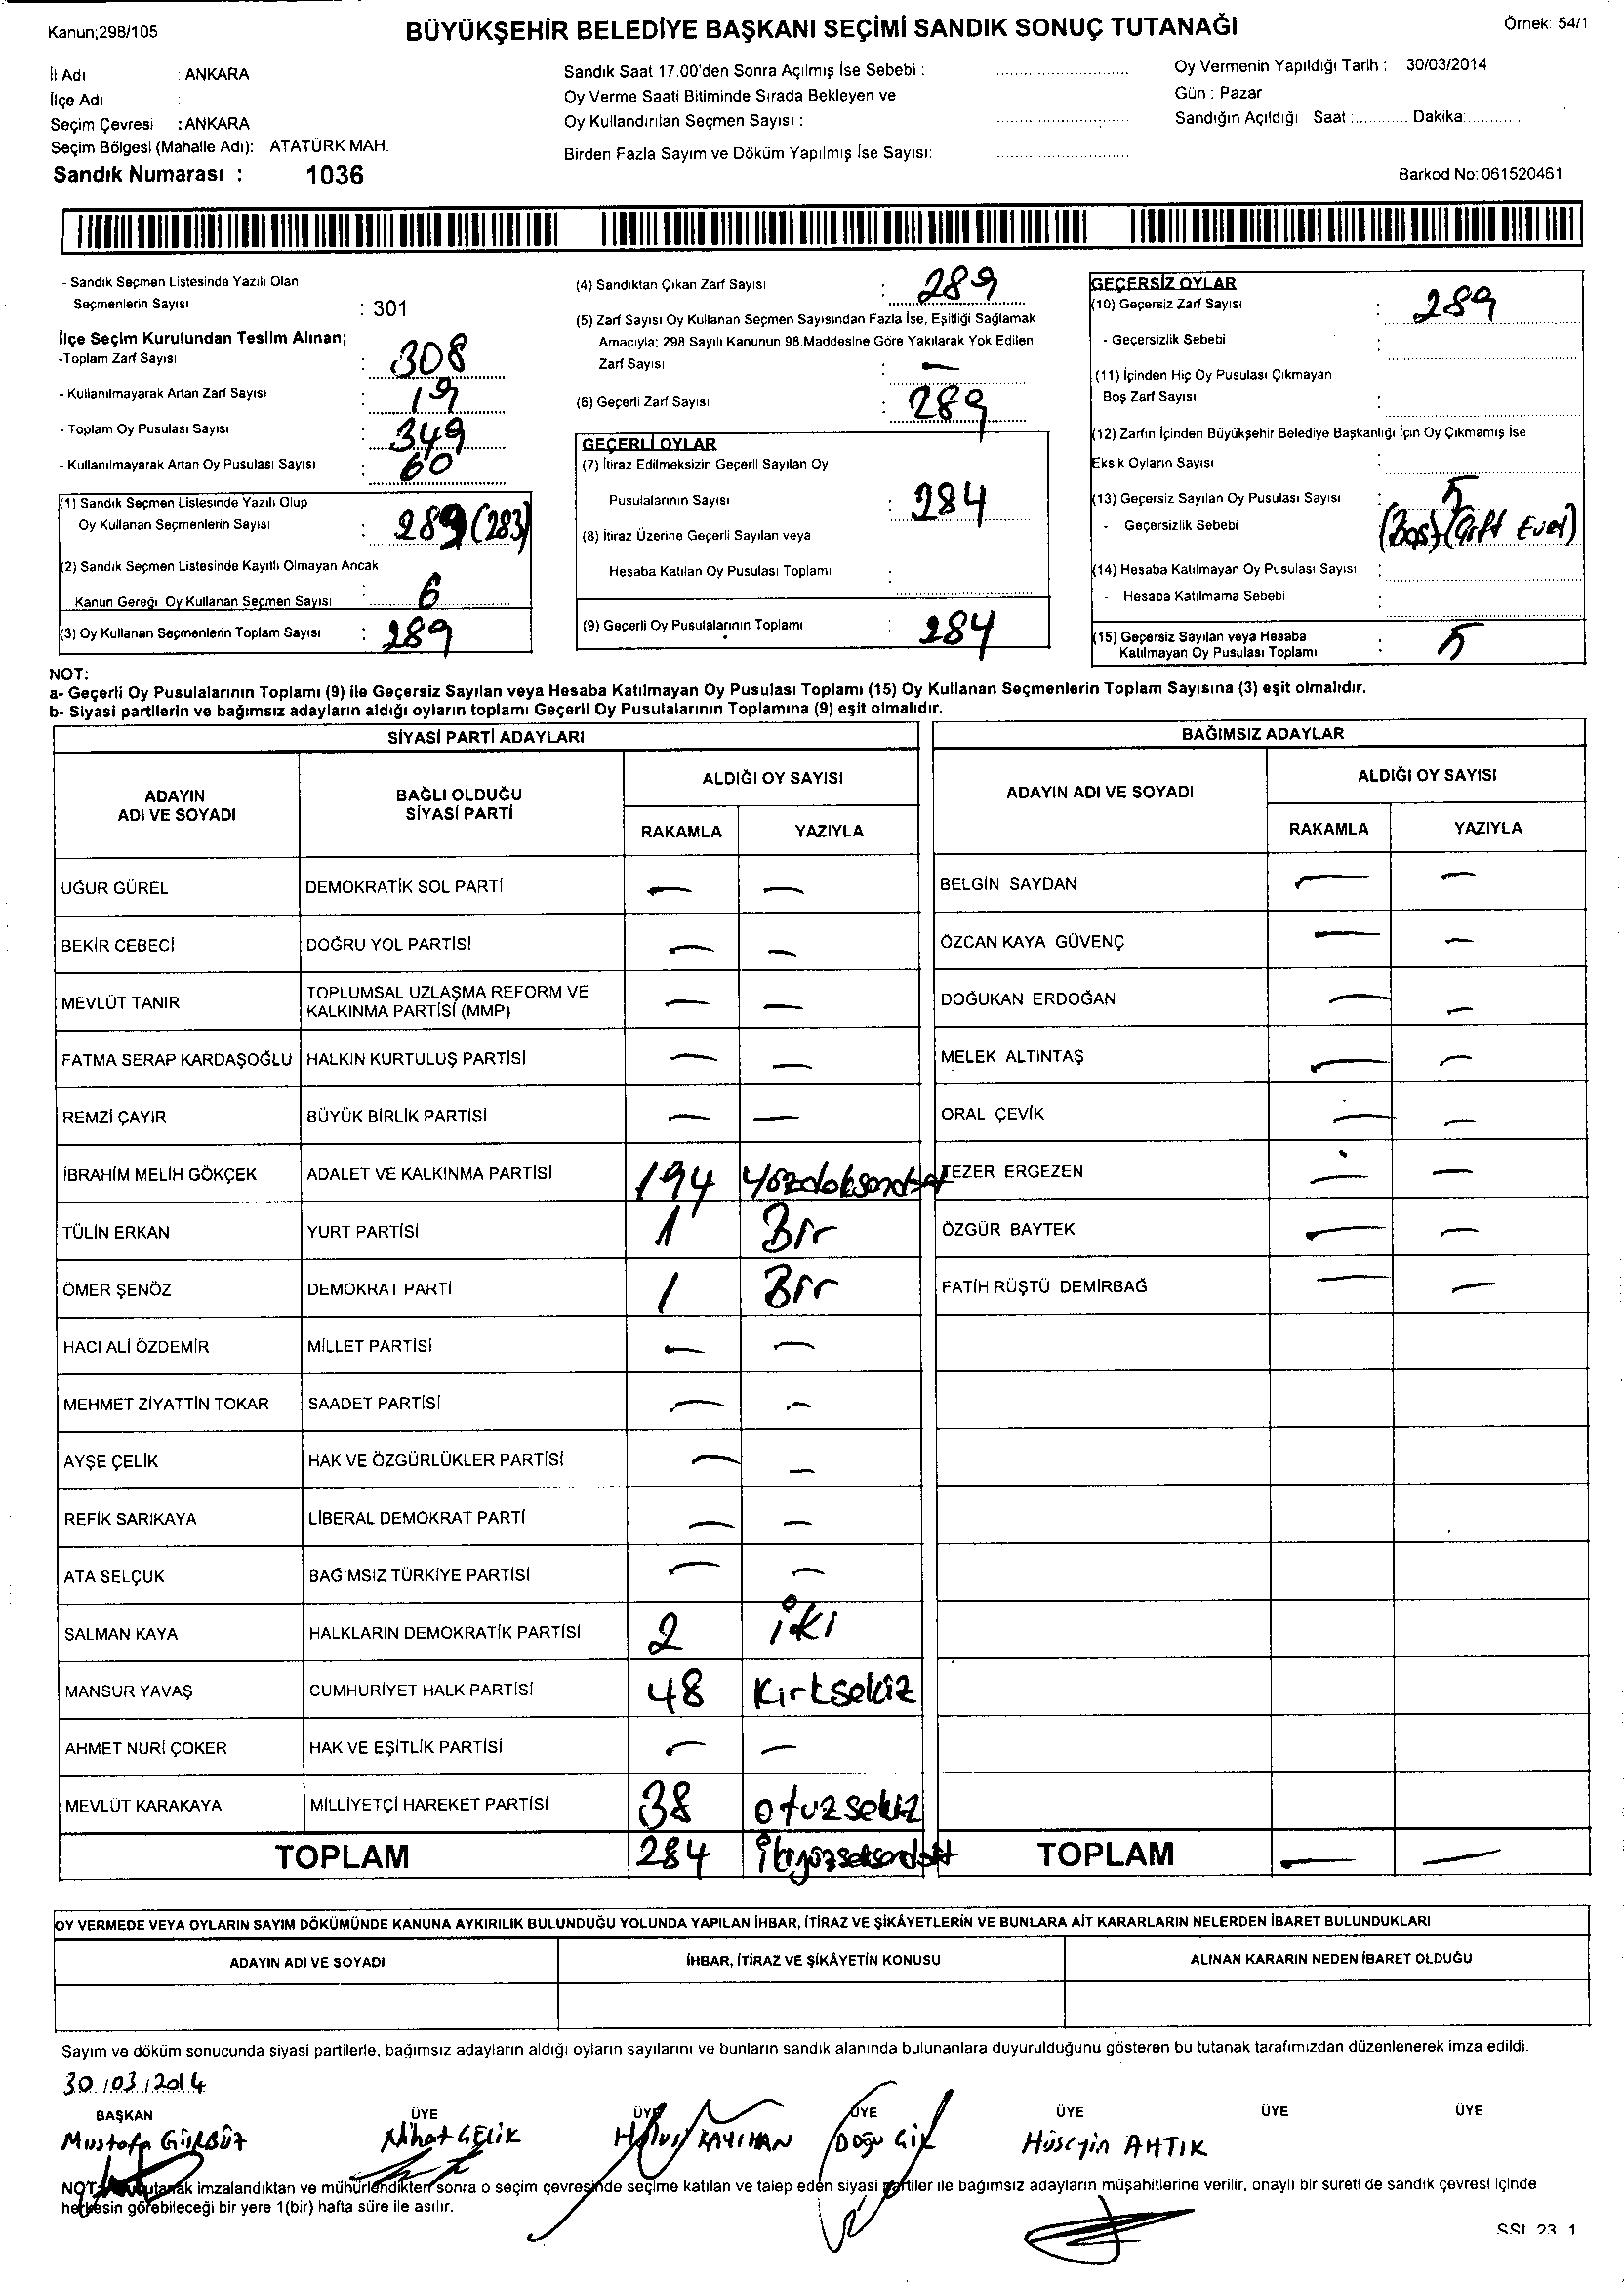 Kanun;298/105
BÜYÜKŞEHİR BELEDİYE BAŞKANI SEÇİMİ SANDIK SONUÇ TUTANAĞI
Örnek: 54/1
İl Adı : ANKARA
İlçe Adı :
Seçim Çevresi : ANKARA
Seçim Bölgesi (Mahalle Adı): ATATÜRK MAH.
Sandık Numarası : 1036
Sandık Saat 17.00'den Sonra Açılmış İse Sebebi :
Oy Verme Saati Bitiminde Sırada Bekleyen ve
Oy Kullandırılan Seçmen Sayısı :
Birden Fazla Sayım ve Döküm Yapılmış İse Sayısı:
Oy Vermenin Yapıldığı Tarih : 30/03/2014
Gün : Pazar
Sandığın Açıldığı Saat :............ Dakika:...........
Barkod No: 061520461
- Sandık Seçmen Listesinde Yazılı Olan
Seçmenlerin Sayısı : 301
İlçe Seçim Kurulundan Teslim Alınan;
-Toplam Zarf Sayısı : 308
- Kullanılmayarak Artan Zarf Sayısı : 19
- Toplam Oy Pusulası Sayısı : 349
- Kullanılmayarak Artan Oy Pusulası Sayısı : 60
(1) Sandık Seçmen Listesinde Yazılı Olup
Oy Kullanan Seçmenlerin Sayısı : 289 (283)
(2) Sandık Seçmen Listesinde Kayıtlı Olmayan Ancak
Kanun Gereği Oy Kullanan Seçmen Sayısı : 6
(3) Oy Kullanan Seçmenlerin Toplam Sayısı : 289
(4) Sandıktan Çıkan Zarf Sayısı : 289
(5) Zarf Sayısı Oy Kullanan Seçmen Sayısından Fazla İse, Eşitliği Sağlamak
Amacıyla; 298 Sayılı Kanunun 98.Maddesine Göre Yakılarak Yok Edilen
Zarf Sayısı : —
(6) Geçerli Zarf Sayısı : 289
GEÇERLİ OYLAR
(7) İtiraz Edilmeksizin Geçerli Sayılan Oy
Pusulalarının Sayısı : 284
(8) İtiraz Üzerine Geçerli Sayılan veya
Hesaba Katılan Oy Pusulası Toplamı :
(9) Geçerli Oy Pusulalarının Toplamı : 284
GEÇERSİZ OYLAR
(10) Geçersiz Zarf Sayısı : 289
- Geçersizlik Sebebi :
(11) İçinden Hiç Oy Pusulası Çıkmayan
Boş Zarf Sayısı :
(12) Zarfın İçinden Büyükşehir Belediye Başkanlığı İçin Oy Çıkmamış İse
Eksik Oyların Sayısı :
(13) Geçersiz Sayılan Oy Pusulası Sayısı : 5
- Geçersizlik Sebebi : (Boş) (Çift Evet)
(14) Hesaba Katılmayan Oy Pusulası Sayısı :
- Hesaba Katılmama Sebebi :
(15) Geçersiz Sayılan veya Hesaba
Katılmayan Oy Pusulası Toplamı : 5
NOT:
a- Geçerli Oy Pusulalarının Toplamı (9) ile Geçersiz Sayılan veya Hesaba Katılmayan Oy Pusulası Toplamı (15) Oy Kullanan Seçmenlerin Toplam Sayısına (3) eşit olmalıdır.
b- Siyasi partilerin ve bağımsız adayların aldığı oyların toplamı Geçerli Oy Pusulalarının Toplamına (9) eşit olmalıdır.
SİYASİ PARTİ ADAYLARI
ADAYIN
ADI VE SOYADI
BAĞLI OLDUĞU
SİYASİ PARTİ
ALDIĞI OY SAYISI
RAKAMLA YAZIYLA
UĞUR GÜREL DEMOKRATİK SOL PARTİ — —
BEKİR CEBECİ DOĞRU YOL PARTİSİ — —
MEVLÜT TANIR TOPLUMSAL UZLAŞMA REFORM VE
KALKINMA PARTİSİ (MMP) — —
FATMA SERAP KARDAŞOĞLU HALKIN KURTULUŞ PARTİSİ — —
REMZİ ÇAYIR BÜYÜK BİRLİK PARTİSİ — —
İBRAHİM MELİH GÖKÇEK ADALET VE KALKINMA PARTİSİ 194 yözdoksandört
TÜLİN ERKAN YURT PARTİSİ 1 Bir
ÖMER ŞENÖZ DEMOKRAT PARTİ 1 Bir
HACI ALİ ÖZDEMİR MİLLET PARTİSİ — —
MEHMET ZİYATTİN TOKAR SAADET PARTİSİ — —
AYŞE ÇELİK HAK VE ÖZGÜRLÜKLER PARTİSİ — —
REFİK SARIKAYA LİBERAL DEMOKRAT PARTİ — —
ATA SELÇUK BAĞIMSIZ TÜRKİYE PARTİSİ — —
SALMAN KAYA HALKLARIN DEMOKRATİK PARTİSİ 2 iki
MANSUR YAVAŞ CUMHURİYET HALK PARTİSİ 48 Kırksekiz
AHMET NURİ ÇOKER HAK VE EŞİTLİK PARTİSİ — —
MEVLÜT KARAKAYA MİLLİYETÇİ HAREKET PARTİSİ 38 otuzsekiz
TOPLAM 284 ikiyüzseksendört
BAĞIMSIZ ADAYLAR
ADAYIN ADI VE SOYADI
ALDIĞI OY SAYISI
RAKAMLA YAZIYLA
BELGİN SAYDAN — —
ÖZCAN KAYA GÜVENÇ — —
DOĞUKAN ERDOĞAN — —
MELEK ALTINTAŞ — —
ORAL ÇEVİK — —
TEZER ERGEZEN — —
ÖZGÜR BAYTEK — —
FATİH RÜŞTÜ DEMİRBAĞ — —
TOPLAM — —
OY VERMEDE VEYA OYLARIN SAYIM DÖKÜMÜNDE KANUNA AYKIRILIK BULUNDUĞU YOLUNDA YAPILAN İHBAR, İTİRAZ VE ŞİKÂYETLERİN VE BUNLARA AİT KARARLARIN NELERDEN İBARET BULUNDUKLARI
ADAYIN ADI VE SOYADI İHBAR, İTİRAZ VE ŞİKÂYETİN KONUSU ALINAN KARARIN NEDEN İBARET OLDUĞU
Sayım ve döküm sonucunda siyasi partilerle, bağımsız adayların aldığı oyların sayılarını ve bunların sandık alanında bulunanlara duyurulduğunu gösteren bu tutanak tarafımızdan düzenlenerek imza edildi.
30/03/2014
BAŞKAN ÜYE ÜYE ÜYE ÜYE ÜYE ÜYE
Mustafa GÜRBÜZ Nihat ÇELİK KAYIHAN Doğu Hüseyin AHTIK
NOT: tutanak imzalandıktan ve mühürlendikten sonra o seçim çevresinde seçime katılan ve talep eden siyasi partiler ile bağımsız adayların müşahitlerine verilir, onaylı bir sureti de sandık çevresi içinde
herkesin görebileceği bir yere 1(bir) hafta süre ile asılır.
SSI 23 1